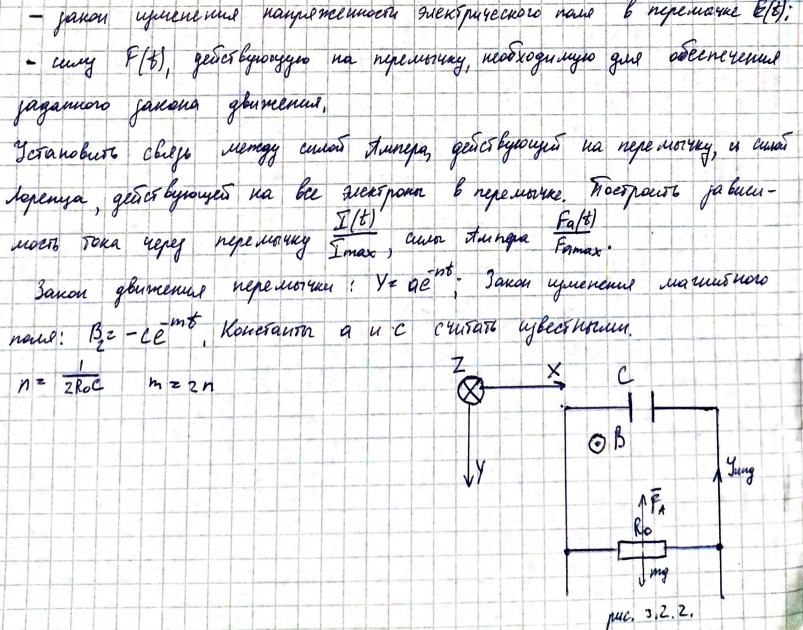 - закон изменения напряженности электрического поля в перемычке E(t);
- силу F(t), действующую на перемычку, необходимую для обеспечения
заданного закона движения.
Установить связь между силой Ампера, действующей на перемычку, и силой
Лоренца, действующей на все электроны в перемычке. Построить зависи-
мость тока через перемычку I(t)/Imax, силы Ампера Fa(t)/Famax.
Закон движения перемычки: y = ae^-nt; Закон изменения магнитного
поля: Bz = -ce^-mt. Константы a и c считать известными.
n = 1/2R₀C m = 2n
Z
X
C
B
Y
Jинд
F̅A
R₀
mg
рис. 3.2.2.